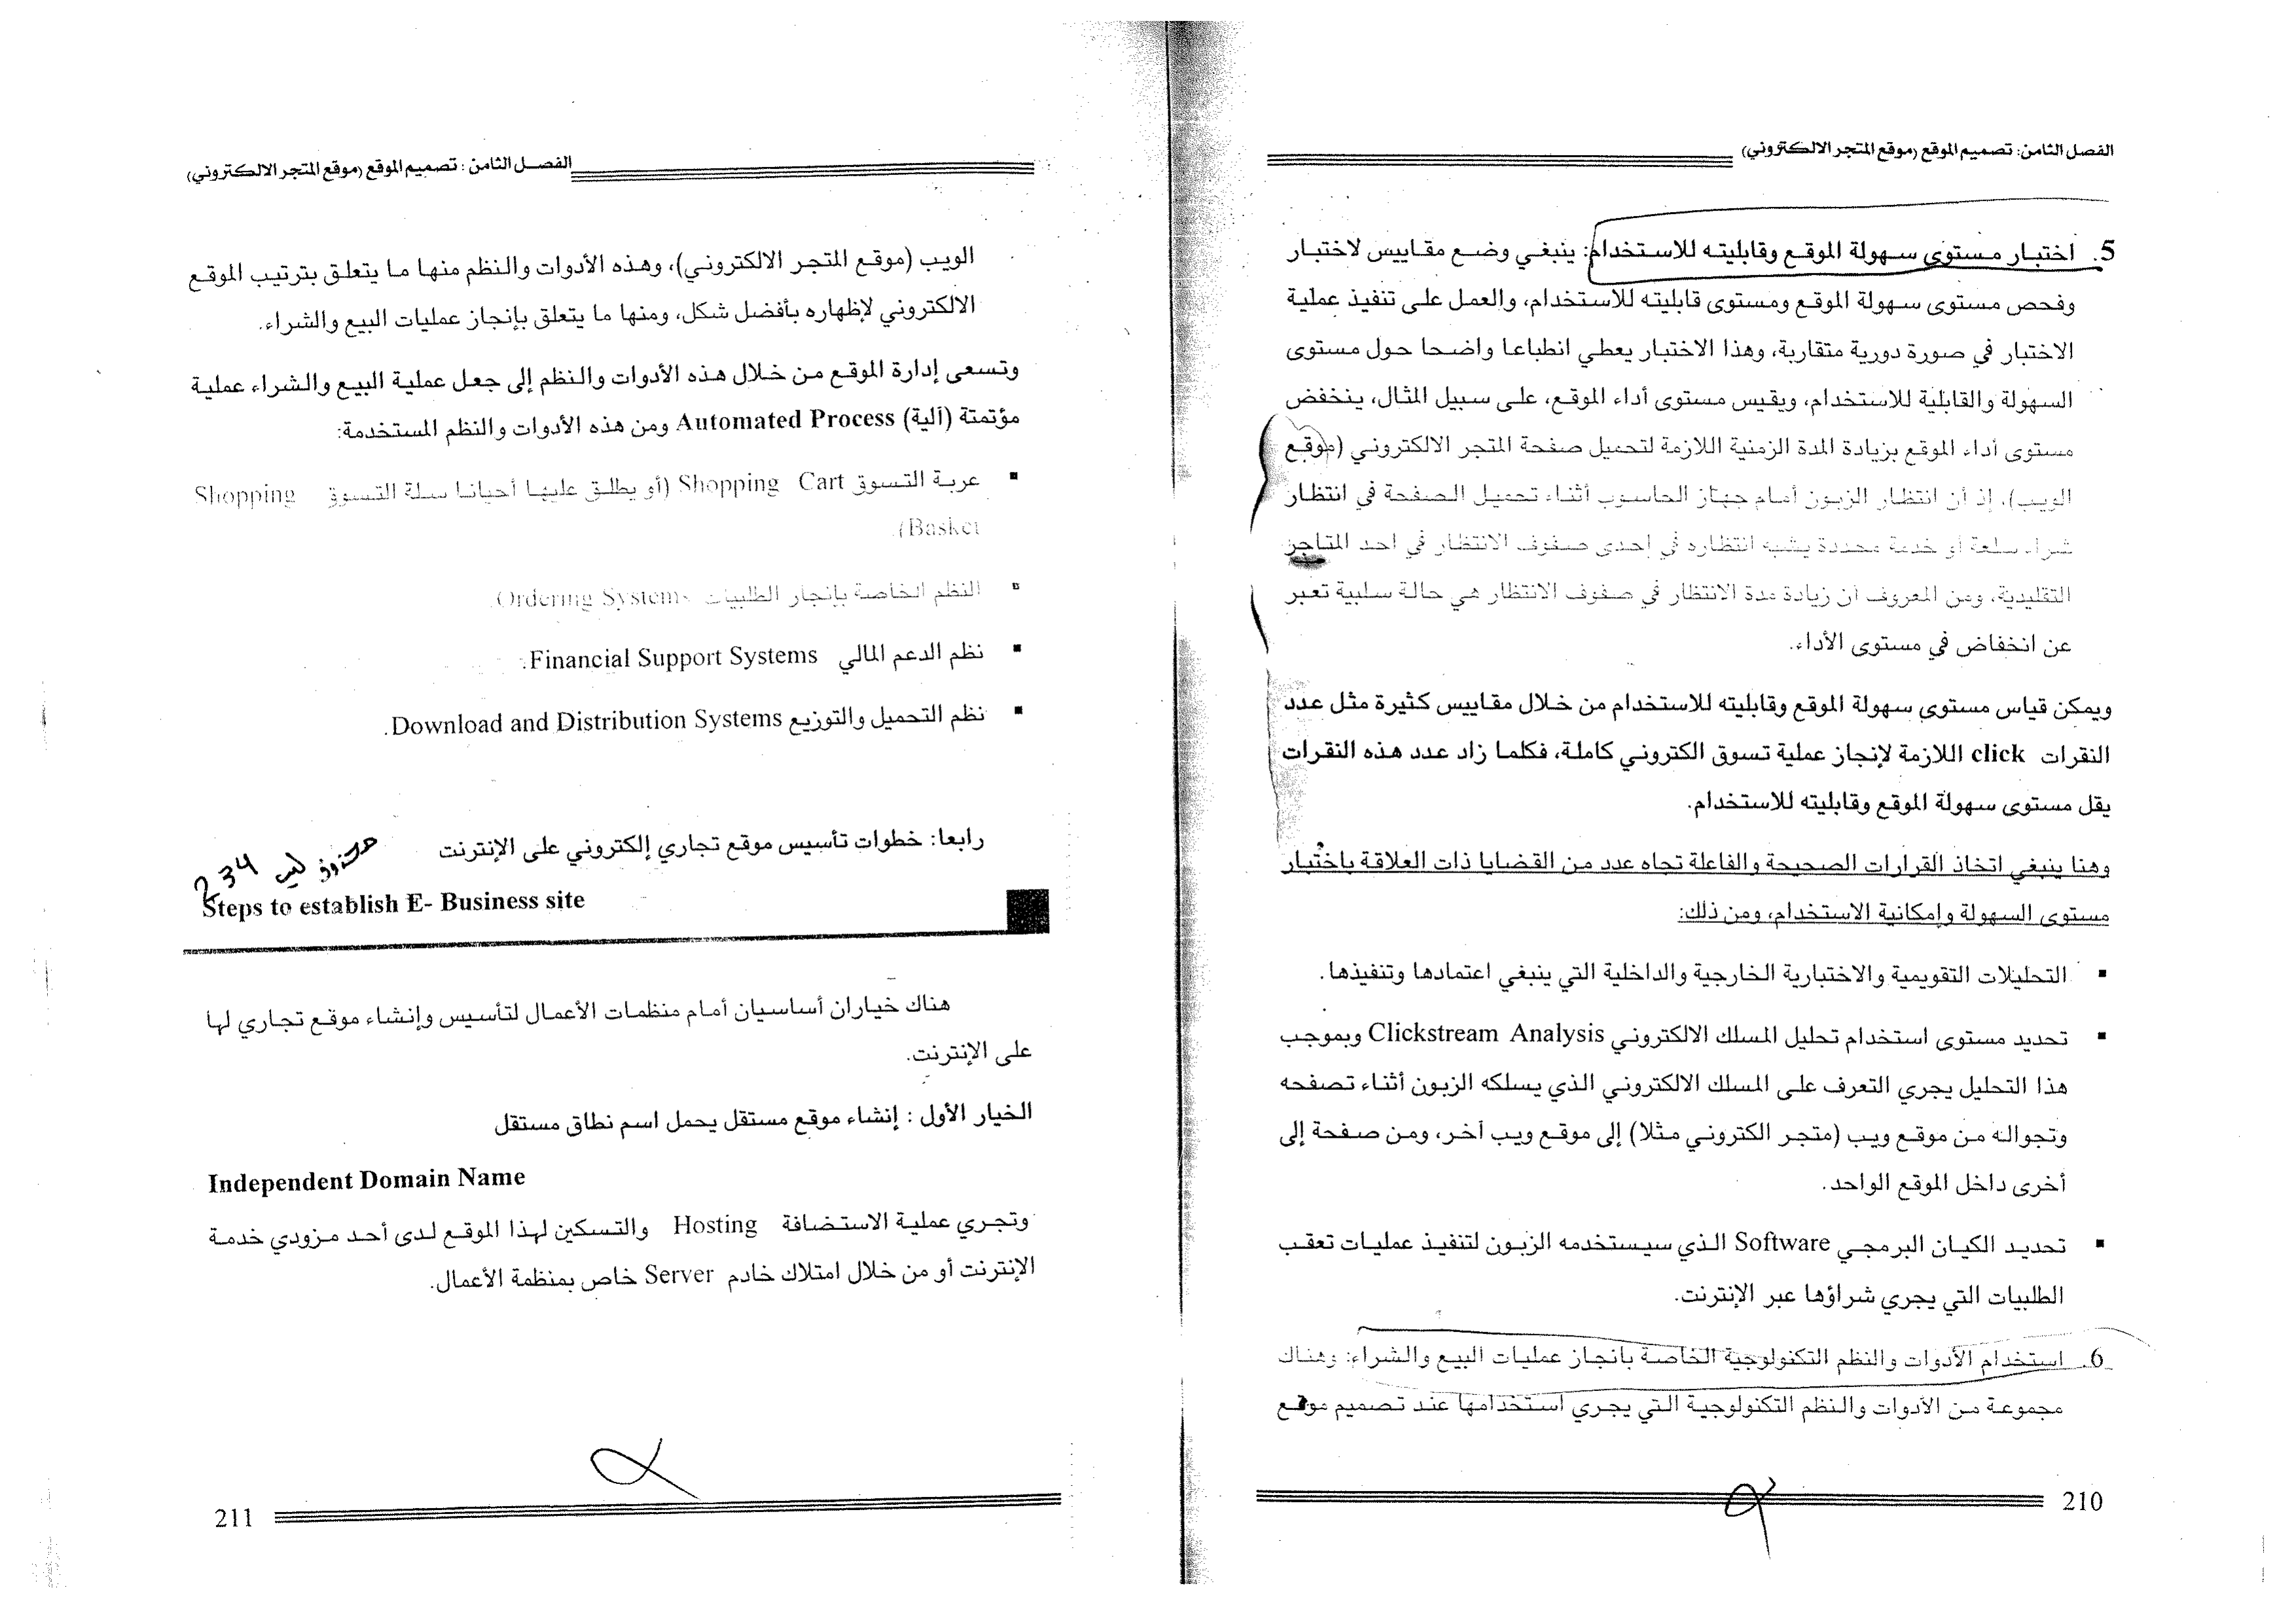 الفصل الثامن: تصميم الموقع (موقع المتجر الالكتروني)
5. اختبار مستوى سهولة الموقع وقابليته للاستخدام: ينبغي وضع مقاييس لاختبار
وفحص مستوى سهولة الموقع ومستوى قابليته للاستخدام، والعمل على تنفيذ عملية
الاختبار في صورة دورية متقاربة، وهذا الاختبار يعطي انطباعا واضحا حول مستوى
السهولة والقابلية للاستخدام، ويقيس مستوى أداء الموقع، على سبيل المثال، ينخفض
مستوى أداء الموقع بزيادة المدة الزمنية اللازمة لتحميل صفحة المتجر الالكتروني (موقع
الويب)، إذ أن انتظار الزبون أمام جهاز الحاسوب أثناء تحميل الصفحة في انتظار
شراء سلعة أو خدمة محددة يشبه انتظاره في إحدى صفوف الانتظار في احد المتاجر
التقليدية، ومن المعروف أن زيادة مدة الانتظار في صفوف الانتظار هي حالة سلبية تعبر
عن انخفاض في مستوى الأداء.
ويمكن قياس مستوى سهولة الموقع وقابليته للاستخدام من خلال مقاييس كثيرة مثل عدد
النقرات click اللازمة لإنجاز عملية تسوق الكتروني كاملة، فكلما زاد عدد هذه النقرات
يقل مستوى سهولة الموقع وقابليته للاستخدام.
وهنا ينبغي اتخاذ القرارات الصحيحة والفاعلة تجاه عدد من القضايا ذات العلاقة باختبار
مستوى السهولة وإمكانية الاستخدام، ومن ذلك:
▪ التحليلات التقويمية والاختبارية الخارجية والداخلية التي ينبغي اعتمادها وتنفيذها.
▪ تحديد مستوى استخدام تحليل المسلك الالكتروني Clickstream Analysis وبموجب
هذا التحليل يجري التعرف على المسلك الالكتروني الذي يسلكه الزبون أثناء تصفحه
وتجواله من موقع ويب (متجر الكتروني مثلا) إلى موقع ويب آخر، ومن صفحة إلى
أخرى داخل الموقع الواحد.
▪ تحديد الكيان البرمجي Software الذي سيستخدمه الزبون لتنفيذ عمليات تعقب
الطلبيات التي يجري شراؤها عبر الإنترنت.
6. استخدام الأدوات والنظم التكنولوجية الخاصة بانجاز عمليات البيع والشراء: وهناك
مجموعة من الأدوات والنظم التكنولوجية التي يجري استخدامها عند تصميم موقع
210
الفصل الثامن: تصميم الموقع (موقع المتجر الالكتروني)
الويب (موقع المتجر الالكتروني)، وهذه الأدوات والنظم منها ما يتعلق بترتيب الموقع
الالكتروني لإظهاره بأفضل شكل، ومنها ما يتعلق بإنجاز عمليات البيع والشراء.
وتسعى إدارة الموقع من خلال هذه الأدوات والنظم إلى جعل عملية البيع والشراء عملية
مؤتمتة (آلية) Automated Process ومن هذه الأدوات والنظم المستخدمة:
▪ عربة التسوق Shopping Cart (أو يطلق عليها أحيانا سلة التسوق Shopping
Basket).
▪ النظم الخاصة بإنجاز الطلبيات Ordering Systems.
▪ نظم الدعم المالي Financial Support Systems.
▪ نظم التحميل والتوزيع Download and Distribution Systems.
رابعا: خطوات تأسيس موقع تجاري إلكتروني على الإنترنت
234
Steps to establish E- Business site
هناك خياران أساسيان أمام منظمات الأعمال لتأسيس وإنشاء موقع تجاري لها
على الإنترنت.
الخيار الأول : إنشاء موقع مستقل يحمل اسم نطاق مستقل
Independent Domain Name
وتجري عملية الاستضافة Hosting والتسكين لهذا الموقع لدى أحد مزودي خدمة
الإنترنت أو من خلال امتلاك خادم Server خاص بمنظمة الأعمال.
211